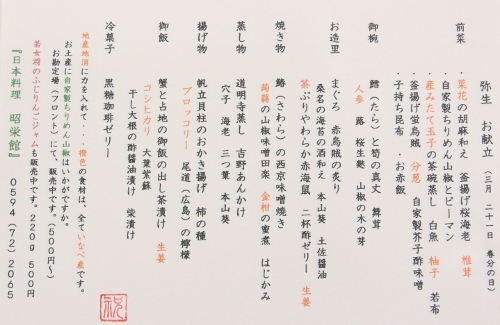 弥生 お献立 (三月 二十一日 春分の日)
前菜 ・菜花の胡麻和え 釜揚げ桜海老 椎茸
・自家製ちりめん山椒とピーマン
・産みたて玉子の茶碗蒸し 白魚 柚子 若布
・釜揚げ蛍烏賊 分葱 自家製芥子酢味噌
・子持ち昆布 ・お赤飯
御椀 鱈(たら)と筍の真丈 舞茸
人参 蕗 桜生麩 山椒の木の芽
お造里 まぐろ 赤烏賊の炙り
桑名の海苔の酒和え 本山葵 土佐醤油
茶ぶりやわらか赤海鼠 二杯酢ゼリー 生姜
焼き物 鰆(さわら)の西京味噌焼き
蒟蒻の山椒味噌田楽 金柑の蜜煮 はじかみ
蒸し物 道明寺蒸し 吉野あんかけ
穴子 海老 三つ葉 本山葵
揚げ物 帆立貝柱のおかき揚げ 柿の種
ブロッコリー 尾道(広島)の檸檬
御飯 蟹と占地の御飯の出し茶漬け 生姜
コシヒカリ 大葉紫蘇
干し大根の酢醤油漬け 柴漬け
冷菓子 黒糖珈琲ゼリー
地産地消に力を入れて・・・橙色の食材は、全ていなべ産です。
お土産に自家製ちりめん山椒はいかがですか。
お勘定場(フロント)にて、販売中です。(500円〜)
若女将のふじりんごジャムも販売中です。220g 500円
『日本料理 昭栄館』 0594(72)2065
祝